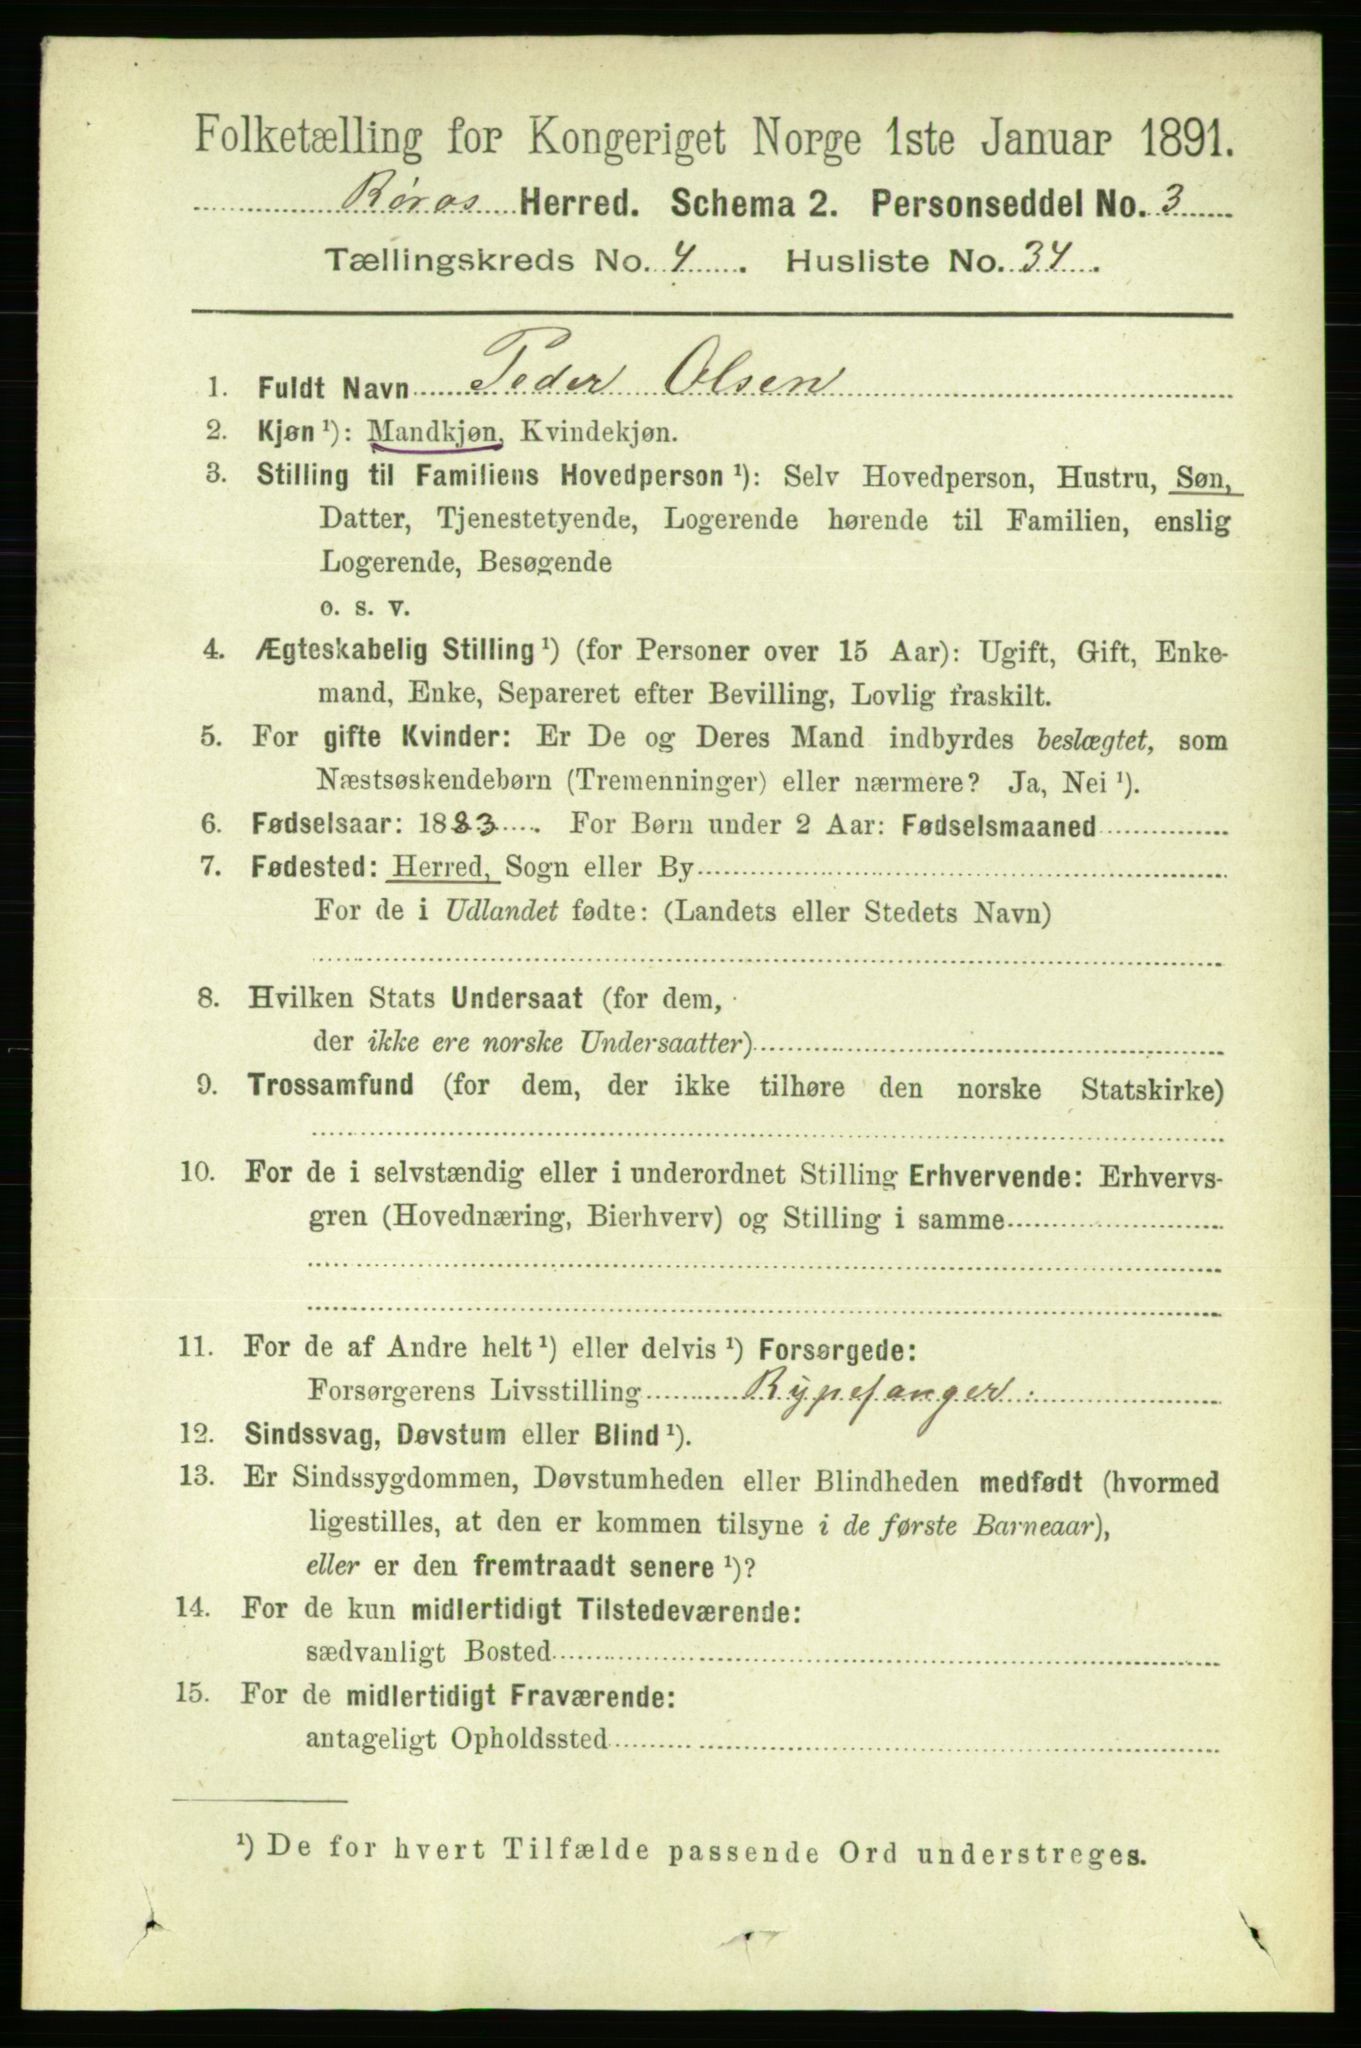 Folketælling for Kongeriget Norge 1ste Januar 1891.
Røros Herred. Schema 2. Personseddel No. 3
Tællingskreds No. 4. Husliste No. 34.
1. Fuldt Navn Peder Olsen
2. Kjøn ¹): Mandkjøn, Kvindekjøn.
3. Stilling til Familiens Hovedperson ¹): Selv Hovedperson, Hustru, Søn,
Datter, Tjenestetyende, Logerende hørende til Familien, enslig
Logerende, Besøgende
o. s. v.
4. Ægteskabelig Stilling ¹) (for Personer over 15 Aar): Ugift, Gift, Enke-
mand, Enke, Separeret efter Bevilling, Lovlig fraskilt.
5. For gifte Kvinder: Er De og Deres Mand indbyrdes beslægtet, som
Næstsøskendebørn (Tremenninger) eller nærmere? Ja, Nei ¹).
6. Fødselsaar: 1883. For Børn under 2 Aar: Fødselsmaaned
7. Fødested: Herred, Sogn eller By
For de i Udlandet fødte: (Landets eller Stedets Navn)
8. Hvilken Stats Undersaat (for dem,
der ikke ere norske Undersaatter)
9. Trossamfund (for dem, der ikke tilhøre den norske Statskirke)
10. For de i selvstændig eller i underordnet Stilling Erhvervende: Erhvervs-
gren (Hovednæring, Bierhverv) og Stilling i samme
11. For de af Andre helt ¹) eller delvis ¹) Forsørgede:
Forsørgerens Livsstilling Rypefanger.
12. Sindssvag, Døvstum eller Blind ¹).
13. Er Sindssygdommen, Døvstumheden eller Blindheden medfødt (hvormed
ligestilles, at den er kommen tilsyne i de første Barneaar),
eller er den fremtraadt senere ¹)?
14. For de kun midlertidigt Tilstedeværende:
sædvanligt Bosted
15. For de midlertidigt Fraværende:
antageligt Opholdssted
¹) De for hvert Tilfælde passende Ord understreges.